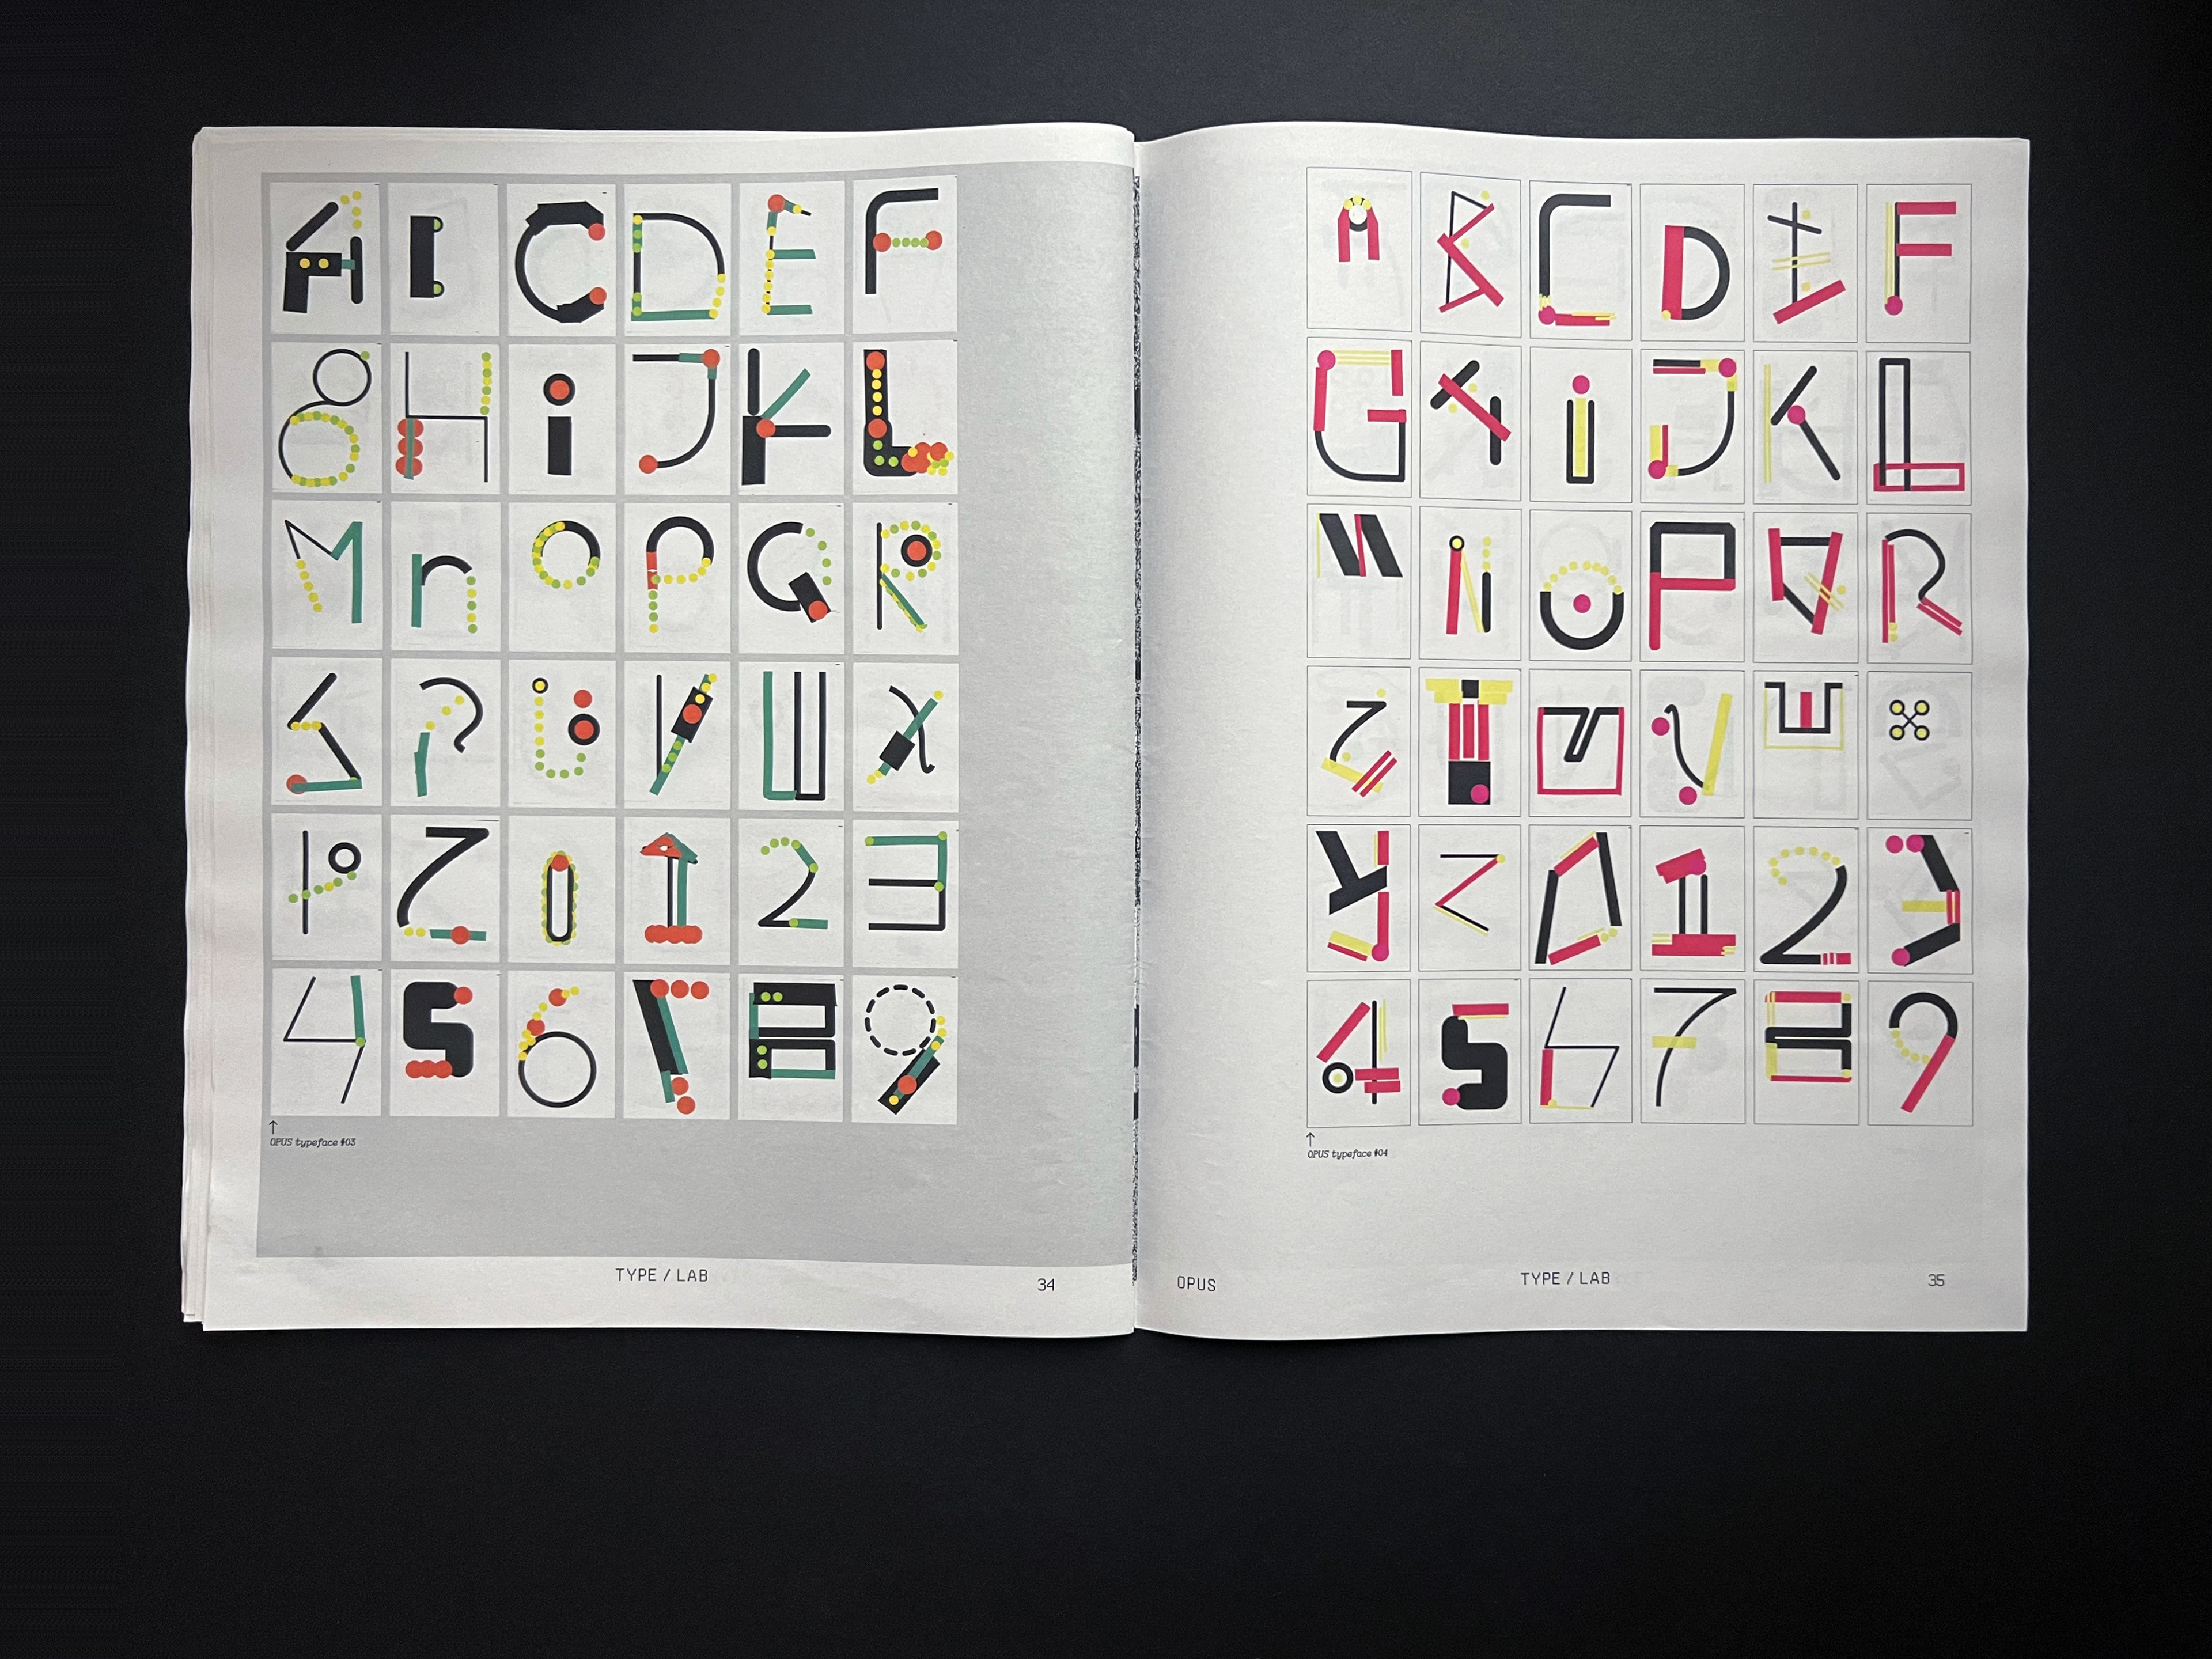 A B C D E F
G H i J K L
M n O P Q R
S T U V W X
Y Z 0 1 2 3
4 5 6 7 8 9
↑
OPUS typeface #03
TYPE / LAB
34
A B C D E F
G H i J K L
M N O P Q R
S T U V W X
Y Z 0 1 2 3
4 5 6 7 8 9
↑
OPUS typeface #04
OPUS
TYPE / LAB
35